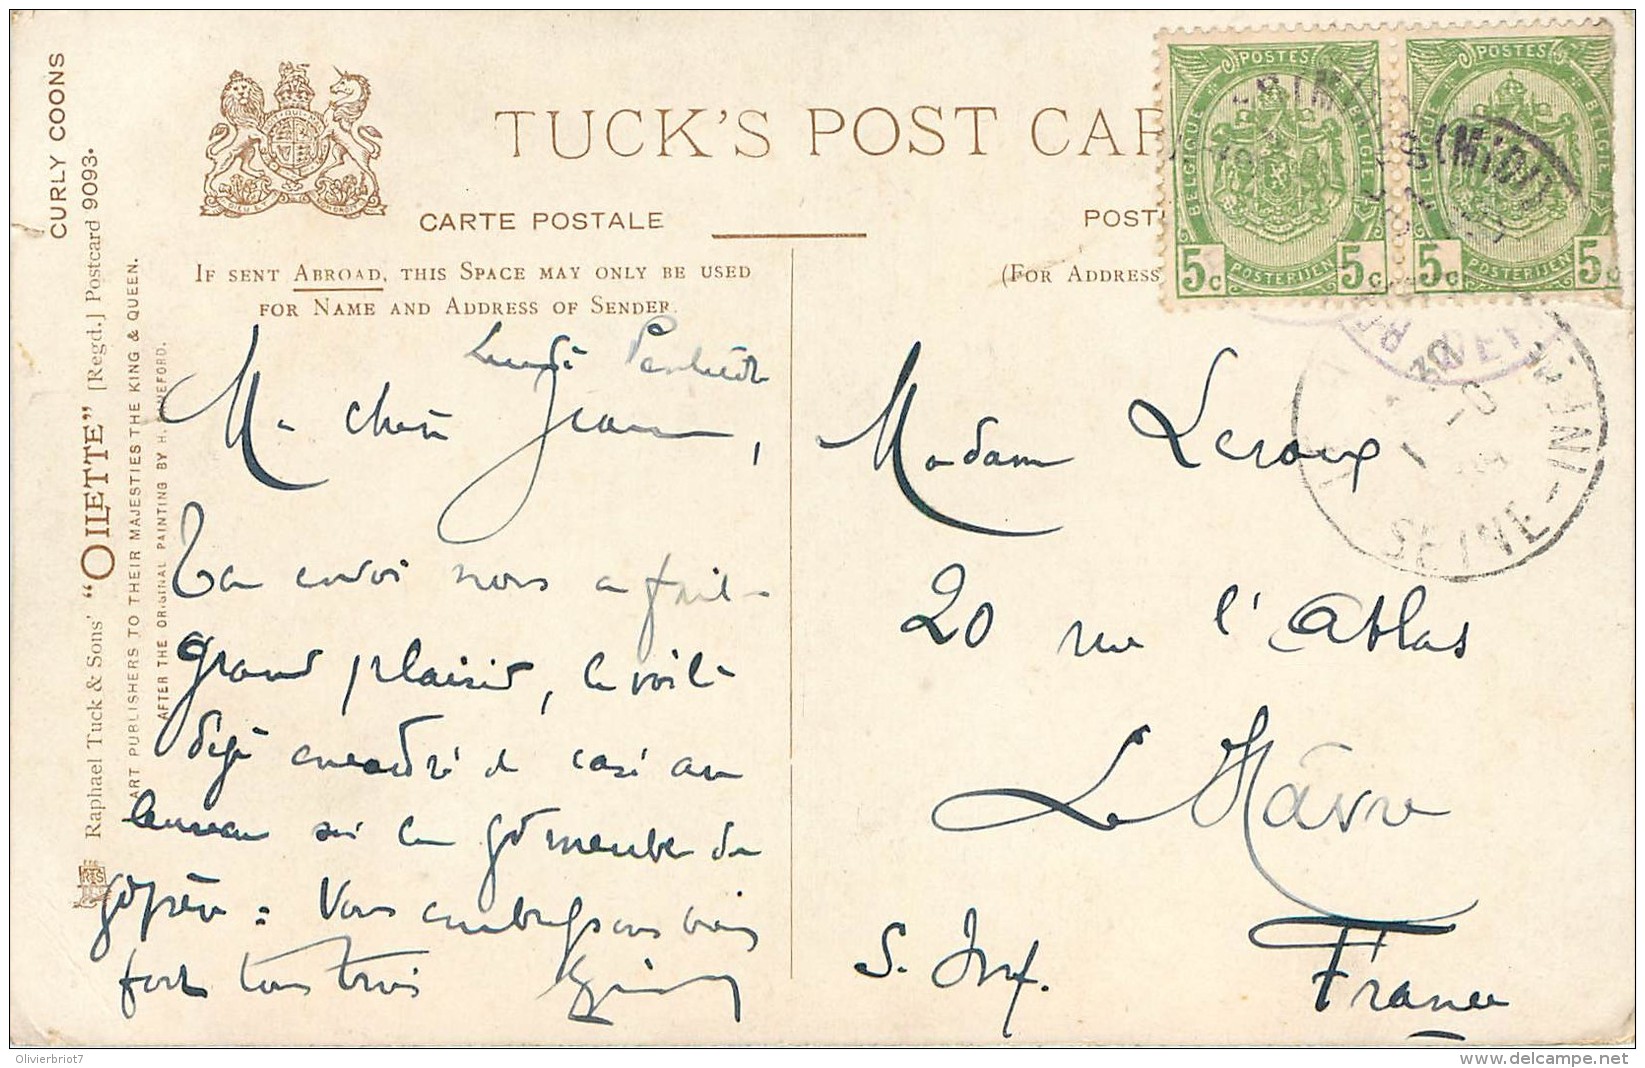 TUCK'S POST CAR
CARTE POSTALE
POST
IF SENT ABROAD, THIS SPACE MAY ONLY BE USED
FOR NAME AND ADDRESS OF SENDER.
(FOR ADDRESS
CURLY COONS
Raphael Tuck & Sons' "OILETTE" [Regd.] Postcard 9093.
ART PUBLISHERS TO THEIR MAJESTIES THE KING & QUEEN.
AFTER THE ORIGINAL PAINTING BY H.
POSTES
BELGIQUE BELGIE
5c POSTERIJEN 5c
POSTES
BELGIE
5c POSTERIJEN 5c
(MIDI)
SEINE-INF
Lundi
Ma chère Jeanne,
Ton envoi nous a fait
grand plaisir, le voilà
déjà encadré et casé au
bureau
Vous embrassons bien
fort tous trois
Madame Leroux
20 rue l'Atlas
Le Hâvre
S. Inf. France
Olivierbriot7
delcampe.net